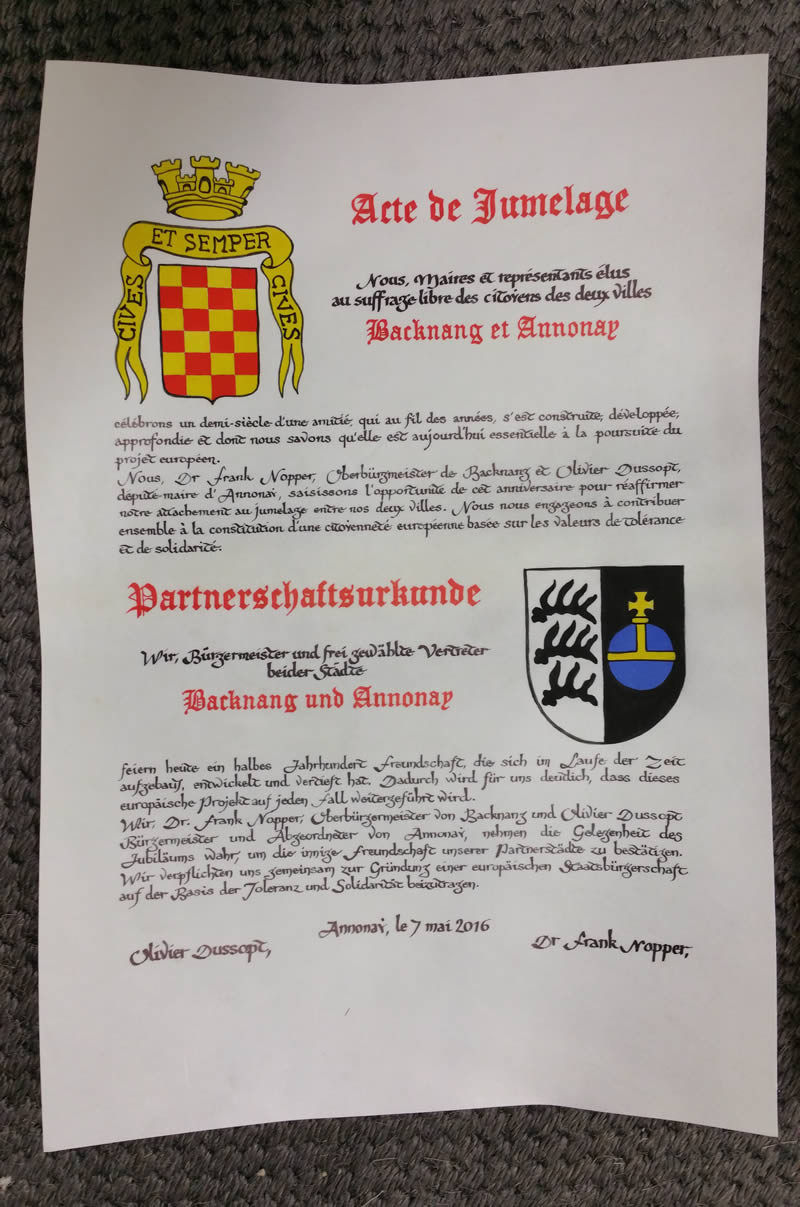 ET SEMPER
CIVES
CIVES
Acte de Jumelage
Nous, Maires et représentants élus
au suffrage libre des citoyens des deux villes
Backnang et Annonay
célébrons un demi-siècle d'une amitié, qui au fil des années, s'est construite, développée,
approfondie et dont nous savons qu'elle est aujourd'hui essentielle à la poursuite du
projet européen.
Nous, Dr Frank Nopper, Oberbürgmeister de Backnang et Olivier Dussopt,
député-maire d'Annonay, saisissons l'opportunité de cet anniversaire pour réaffirmer
notre attachement au jumelage entre nos deux villes. Nous nous engageons à contribuer
ensemble à la constitution d'une citoyenneté européenne basée sur les valeurs de tolérance
et de solidarité.
Partnerschaftsurkunde
Wir, Bürgermeister und frei gewählte Vertreter
beider Städte
Backnang und Annonay
feiern heute ein halbes Jahrhundert Freundschaft, die sich im Laufe der Zeit
aufgebaut, entwickelt und vertieft hat. Dadurch wird für uns deutlich, dass dieses
europäische Projekt auf jeden Fall weitergeführt wird.
Wir, Dr. Frank Nopper, Oberbürgermeister von Backnang und Olivier Dussopt
Bürgermeister und Abgeordneter von Annonay, nehmen die Gelegenheit des
Jubiläums wahr, um die innige Freundschaft unserer Partnerstädte zu bestätigen.
Wir verpflichten uns gemeinsam zur Gründung einer europäischen Staatsbürgerschaft
auf der Basis der Toleranz und Solidarität beizutragen.
Annonay, le 7 mai 2016
Olivier Dussopt,
Dr Frank Nopper,